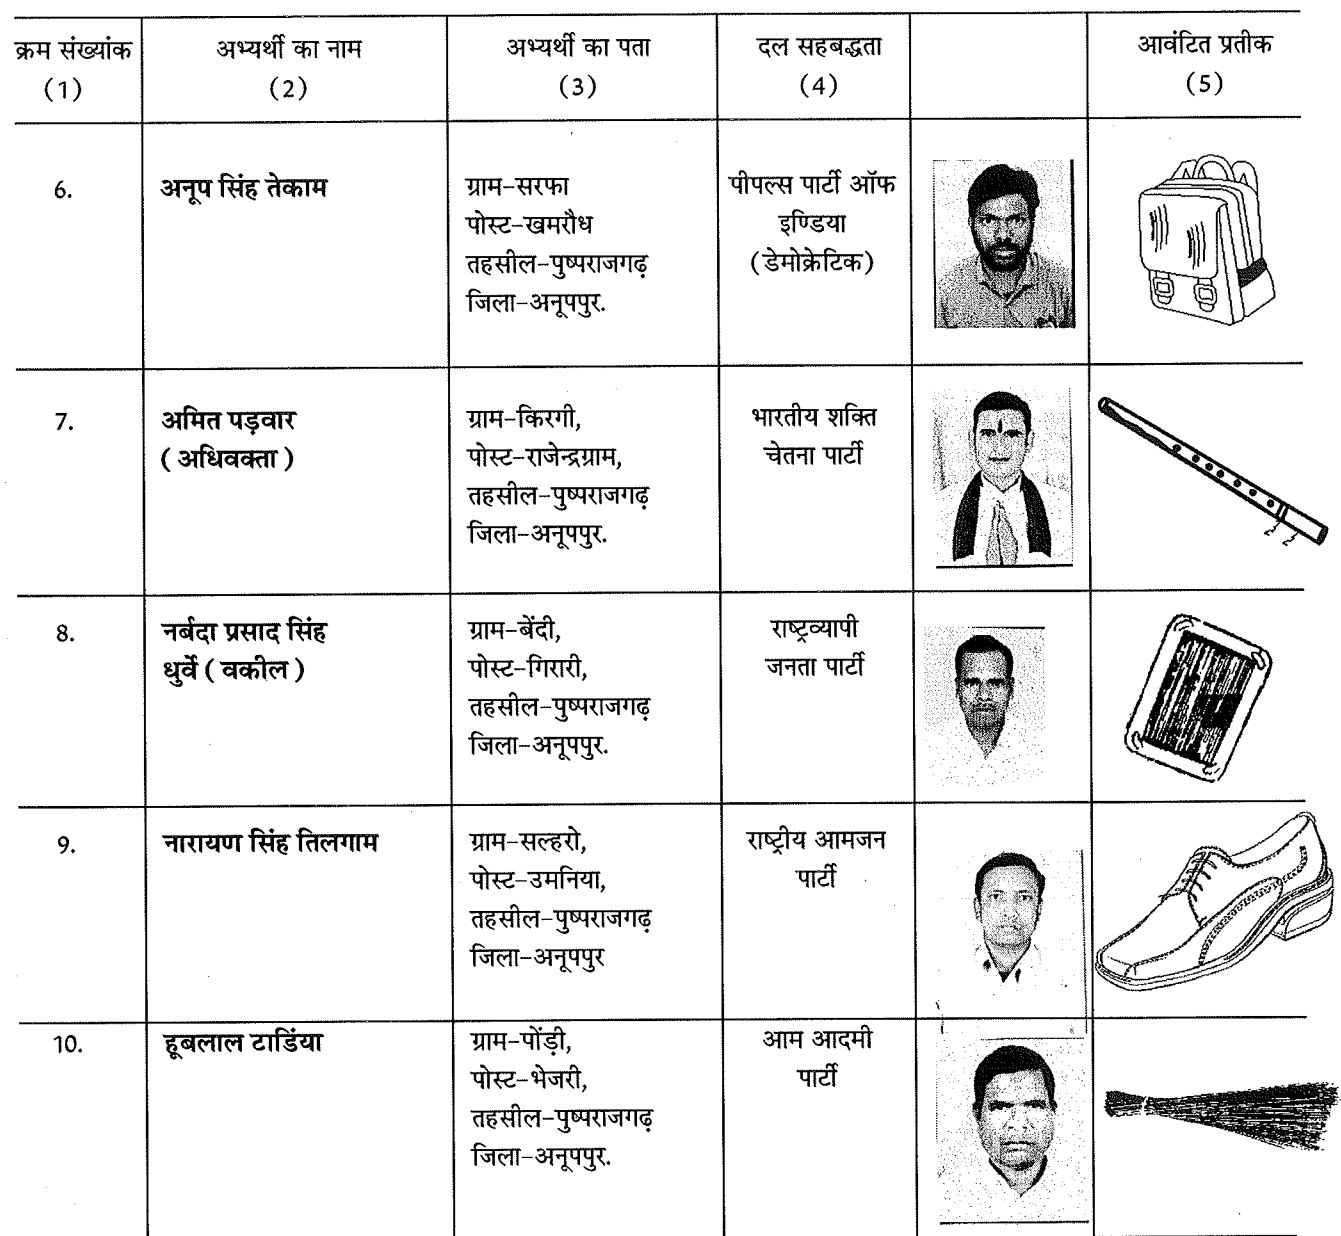 क्रम संख्यांक
(1)
अभ्यर्थी का नाम
(2)
अभ्यर्थी का पता
(3)
दल सहबद्धता
(4)
आवंटित प्रतीक
(5)
6.
अनूप सिंह तेकाम
ग्राम-सरफा
पोस्ट-खमरौध
तहसील-पुष्पराजगढ़
जिला-अनूपपुर.
पीपल्स पार्टी ऑफ
इण्डिया
(डेमोक्रेटिक)
7.
अमित पड़वार
( अधिवक्ता )
ग्राम-किरगी,
पोस्ट-राजेन्द्रग्राम,
तहसील-पुष्पराजगढ़
जिला-अनूपपुर.
भारतीय शक्ति
चेतना पार्टी
8.
नर्बदा प्रसाद सिंह
धुर्वे ( वकील )
ग्राम-बेंदी,
पोस्ट-गिरारी,
तहसील-पुष्पराजगढ़
जिला-अनूपपुर.
राष्ट्रव्यापी
जनता पार्टी
9.
नारायण सिंह तिलगाम
ग्राम-सल्हरो,
पोस्ट-उमनिया,
तहसील-पुष्पराजगढ़
जिला-अनूपपुर
राष्ट्रीय आमजन
पार्टी
10.
हूबलाल टाडिंया
ग्राम-पोंड़ी,
पोस्ट-भेजरी,
तहसील-पुष्पराजगढ़
जिला-अनूपपुर.
आम आदमी
पार्टी